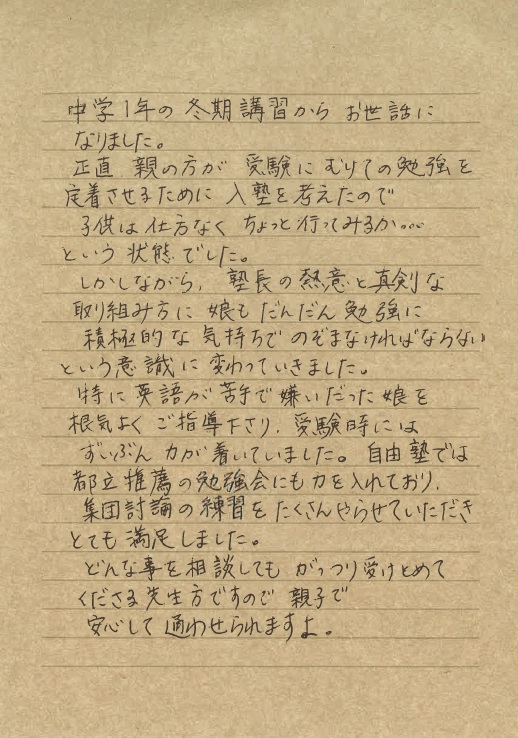 中学1年の冬期講習から お世話に
なりました。
正直 親の方が 受験に むけての勉強を
定着させるために 入塾を考えたので
子供は仕方なく ちょっと行ってみるか。。。
という状態でした。
しかしながら、塾長の熱意と真剣な
取り組み方に 娘も だんだん 勉強に
積極的な 気持ちで のぞまなければならない
という意識に 変わっていきました。
特に英語が苦手で嫌いだった娘を
根気よく ご指導下さり、受験時には
ずいぶん 力が着いていました。自由塾では
都立推薦の勉強会にも力を入れており、
集団討論の練習を たくさんやらせていただき
とても満足しました。
どんな事を相談しても がっつり受けとめて
くださる先生方ですので 親子で
安心して 通わせられますよ。